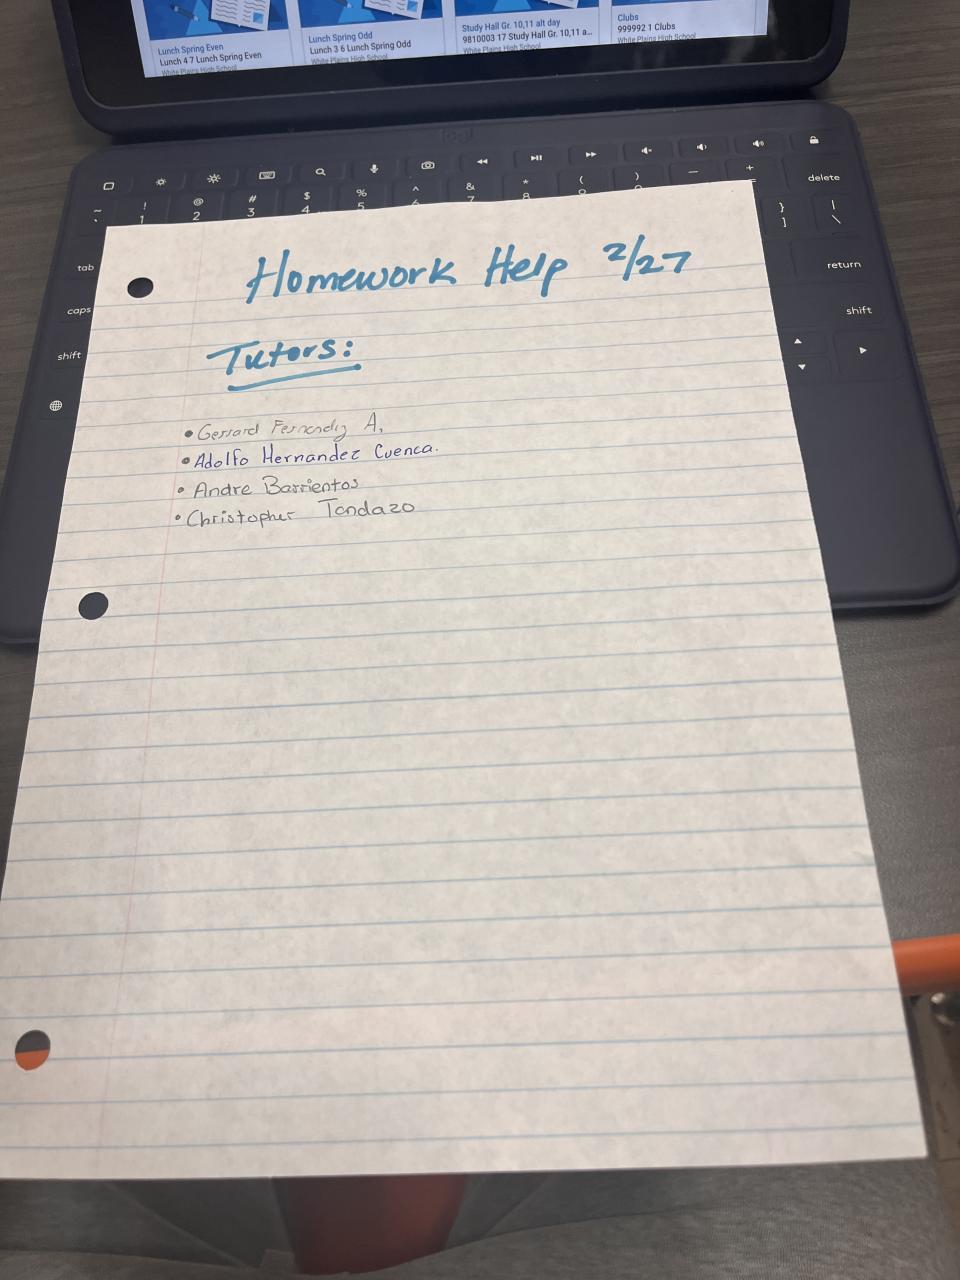 Lunch Spring Even
Lunch 4 7 Lunch Spring Even
White Plains High School
Lunch Spring Odd
Lunch 3 6 Lunch Spring Odd
White Plains High School
Study Hall Gr. 10,11 alt day
9810003 17 Study Hall Gr. 10,11 a...
White Plains High School
Clubs
999992 1 Clubs
White Plains High School
logi
~ ! @ # $ % ^ & * ( ) — +
` 1 2 3 4 5 6 7 8 9 =
delete
tab
} |
] \
caps
return
shift
shift
Homework Help 2/27
Tutors:
• Gerrard Fernandiz A.
• Adolfo Hernandez Cuenca.
• Andre Barrientos
• Christopher Tendazo